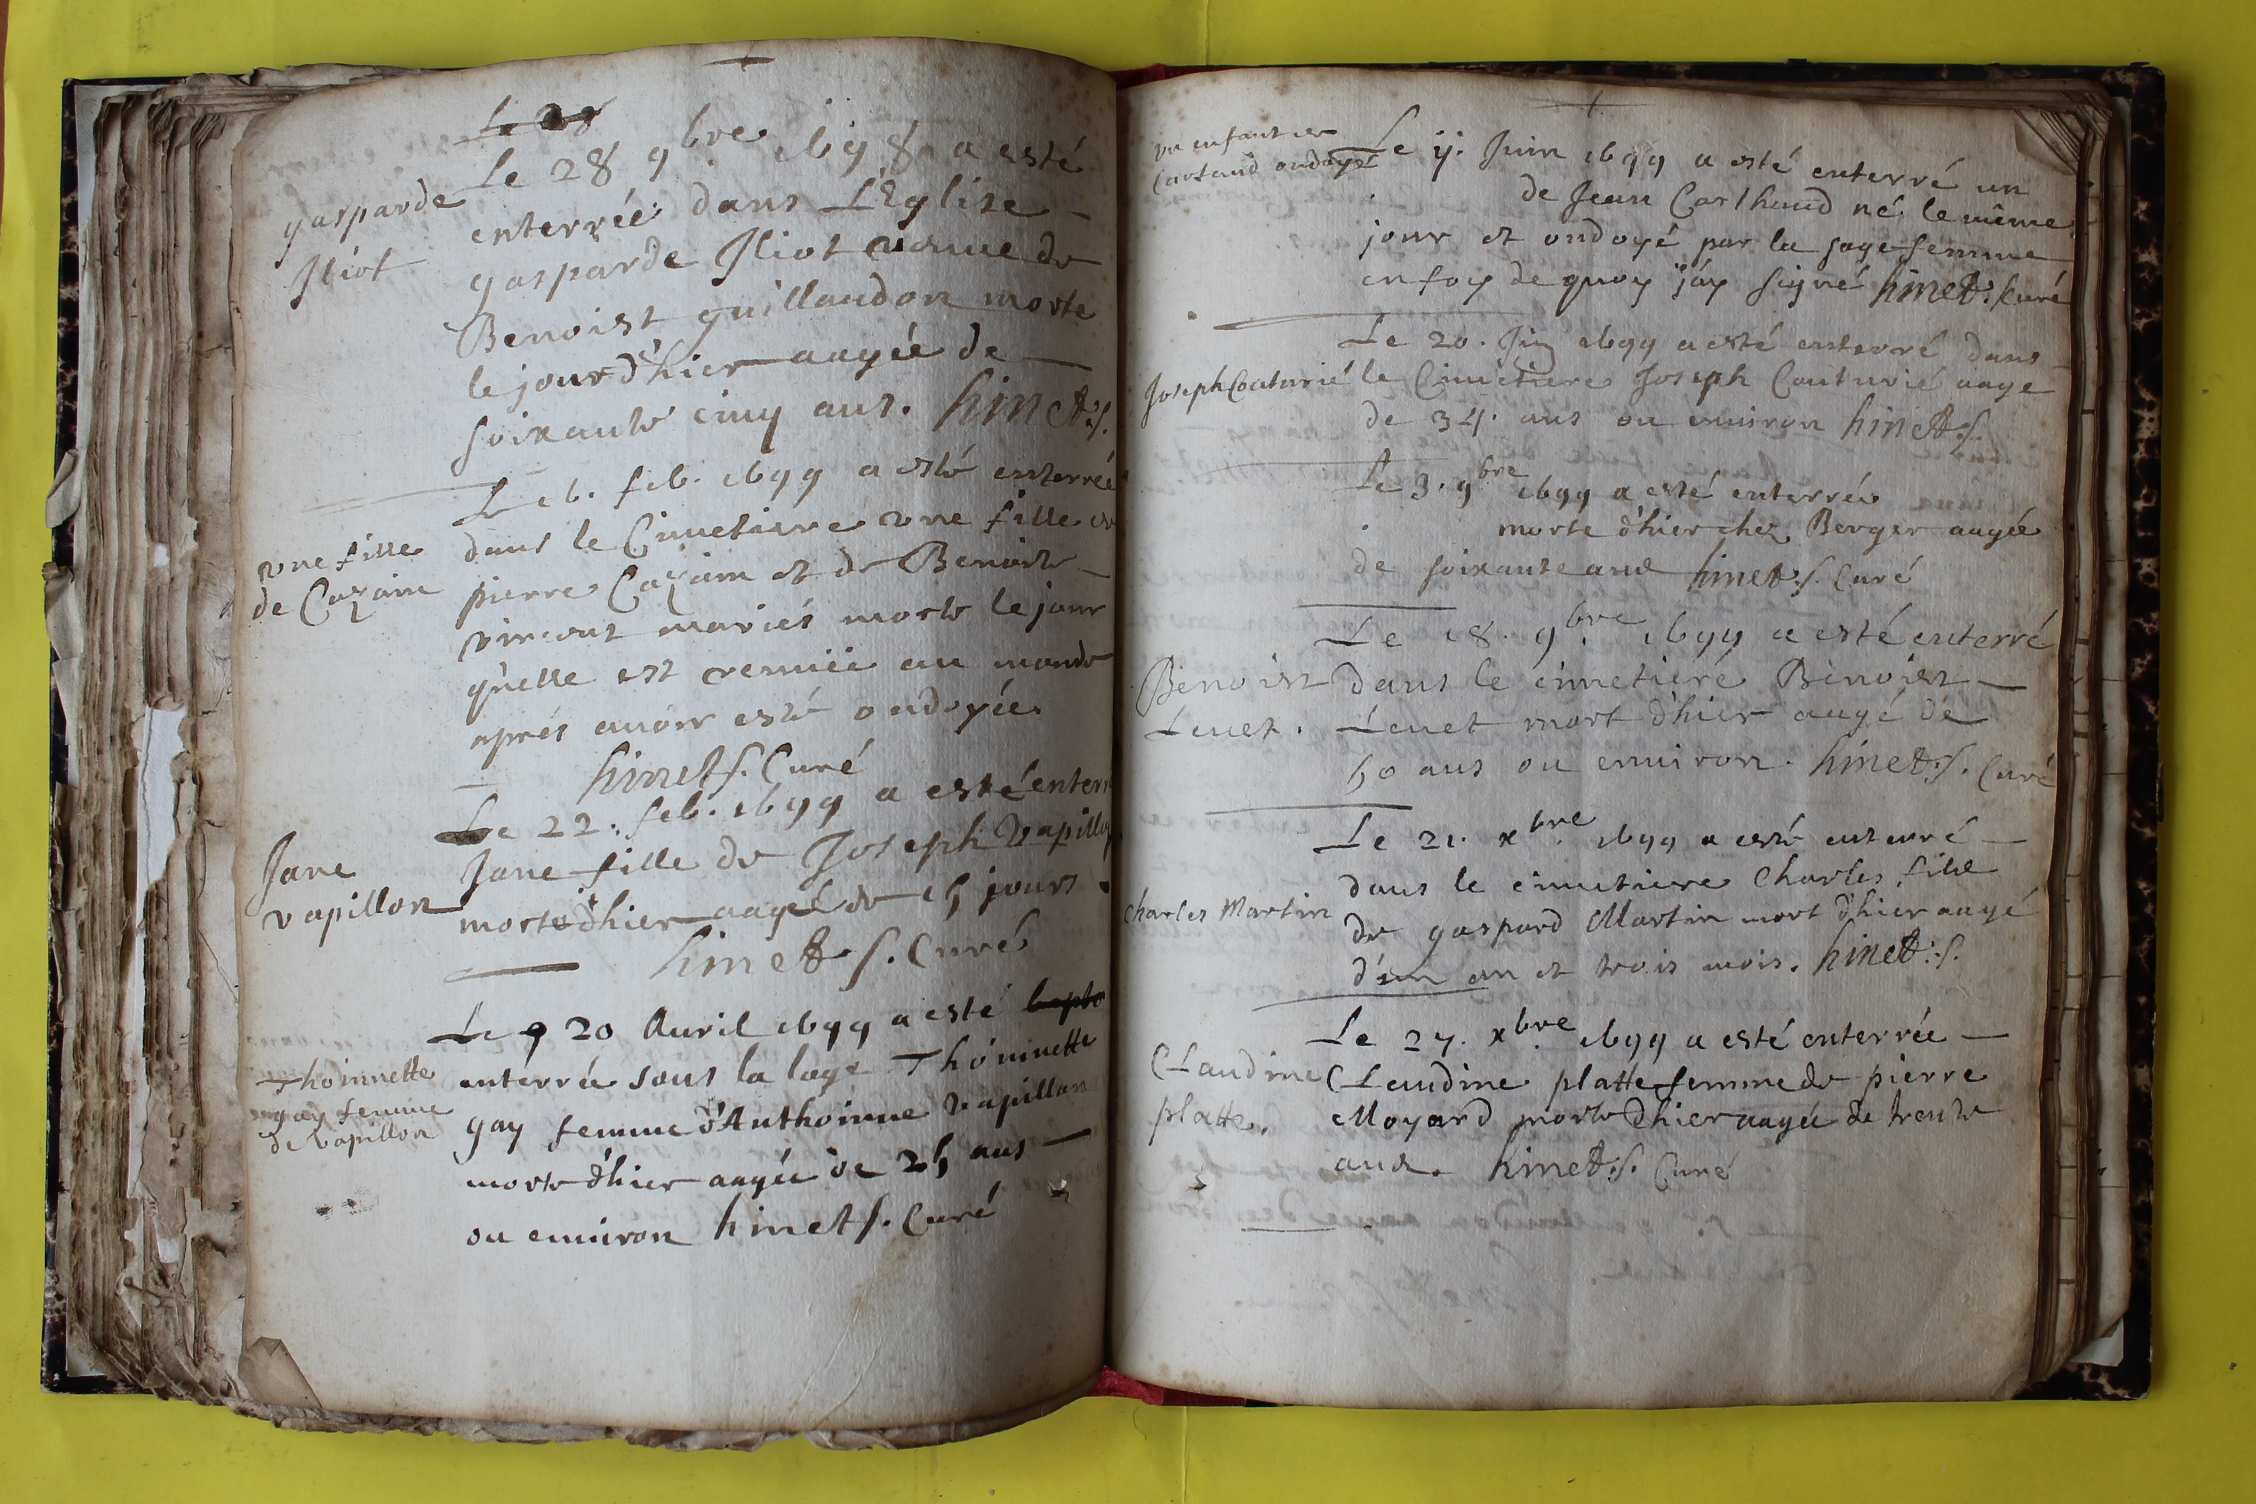 Le 28
Le 28 9bre 1698 a esté
gasparde
Iliot
enterrée dans L'Eglise
gasparde Iliot veuue de
Benoist guillaudon morte
le jour d'hier aagée de
soixante cinq ans. hinet s.
Le 16. feb. 1699 a esté enterrée
une fille
de Cazain
dans le Cimetiere une fille de
pierre Cazain et de Benoite
vincent mariés morte le jour
qu'elle est venuée au monde
aprés auoir esté ondoyée.
hinet s. Curé
Le 22. feb. 1699 a esté enterr
Jane
vapillon
Jane fille de Joseph vapillon
morte d'hier aagée de 15 jours.
hinet s. Curé
Le 20 Auril 1699 a esté bapte
Thoinnette
gay femme
de vapillon
enterrée sous la loge Thoinnette
gay femme d'Anthoinne vapillon
morte d'hier aagée de 25 ans
ou enuiron hinet s. Curé
un enfant de
Cartaud ondoyé
Le ij. Juin 1699 a esté enterré un
de Jean Carthaud né le même
jour et ondoyé par la sage femme
en foy de quoy j'ay signé hinet. Curé
Le 20. Jin 1699 a esté enterré dans
Joseph Couturié
le Cimetiere Joseph Couturié aage
de 34. ans ou enuiron hinet s.
Le 3. 9bre 1699 a esté enterrée
morte d'hier chez Berger aagée
de soixante ans hinet s. Curé
Le 18. 9bre 1699 a esté enterré
Benoist
Leuet.
dans le cimetiere Benoist
Leuet mort d'hier aagé de
50 ans ou enuiron. hinet s. Curé
Le 21. xbre 1699 a esté enterré
dans le cimetiere Charles filz
Charles Martin
de gaspard Martin mort d'hier aagé
d'un an et trois mois. hinet s.
Le 27. xbre 1699 a esté enterrée
Claudine
platte.
Claudine platte femme de pierre
Moyard morte d'hier aagée de trente
ans. hinet s. Curé